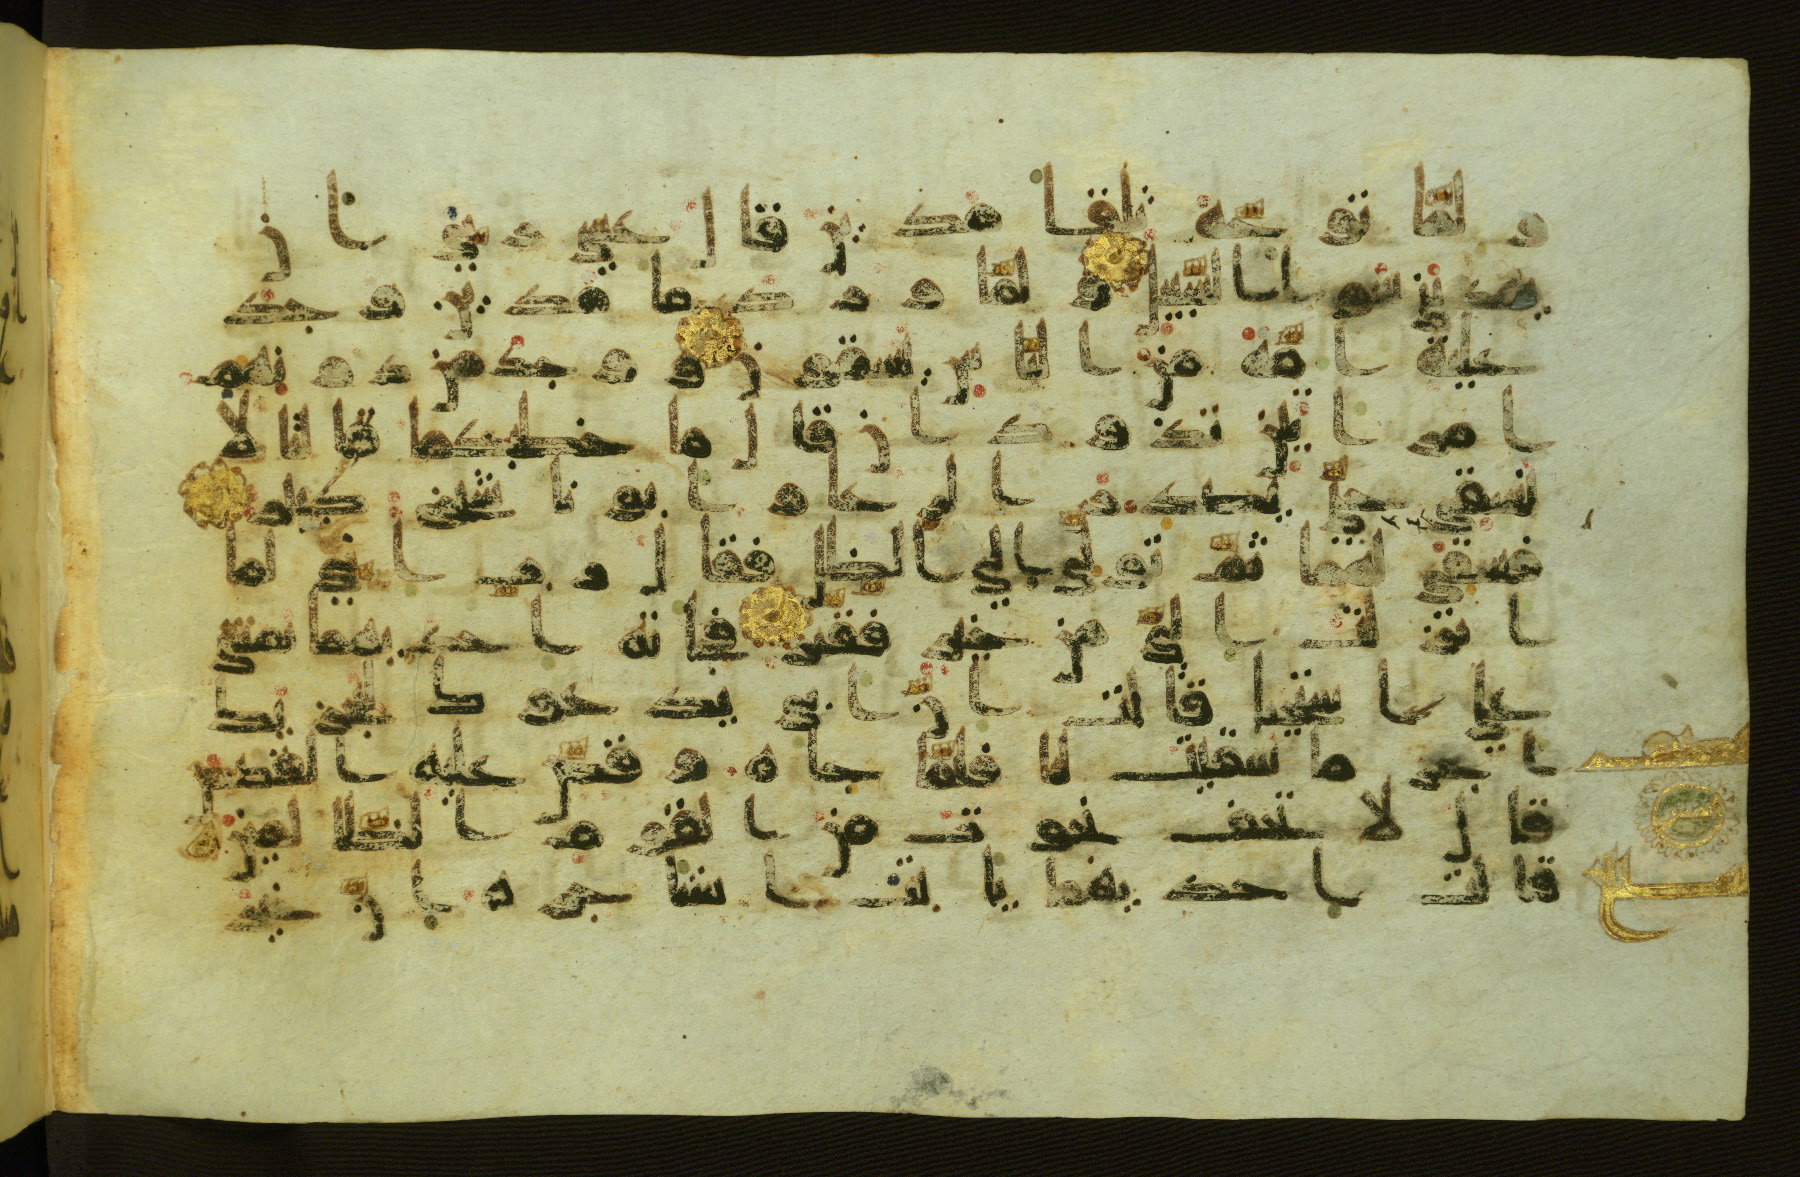 ولما توجه تلقا مدين قال عسى ربي ان
يهديني سوا السبيل ولما ورد ما مدين وجد
عليه امة من الناس يسقون ووجد من دونهم
امراتين تذودان قال ما خطبكما قالتا لا
نسقي حتى يصدر الرعا وابونا شيخ كبير
فسقى لهما ثم تولى الى الظل فقال رب اني لما
انزلت الي من خير فقير فجاته احديهما تمشي
على استحيا قالت ان ابي يدعوك ليجزيك
اجر ما سقيت لنا فلما جاه وقص عليه القصص
قال لا تخف نجوت من القوم الظالمين
قالت احديهما يابت استاجره ان خير